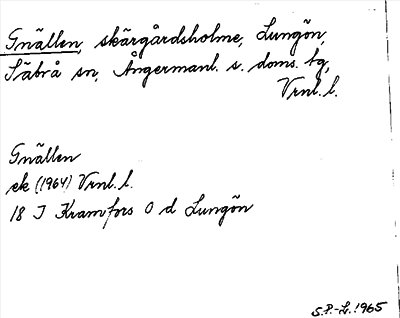 Gnällen, skärgårdsholme, Lungön,
Säbrå sn, Ångermanl. s. doms. tg,
Vrnl. l.
Gnällen
ek (1964) Vrnl. l.
18 I Kramfors O d Lungön
S.P.-L. 1965